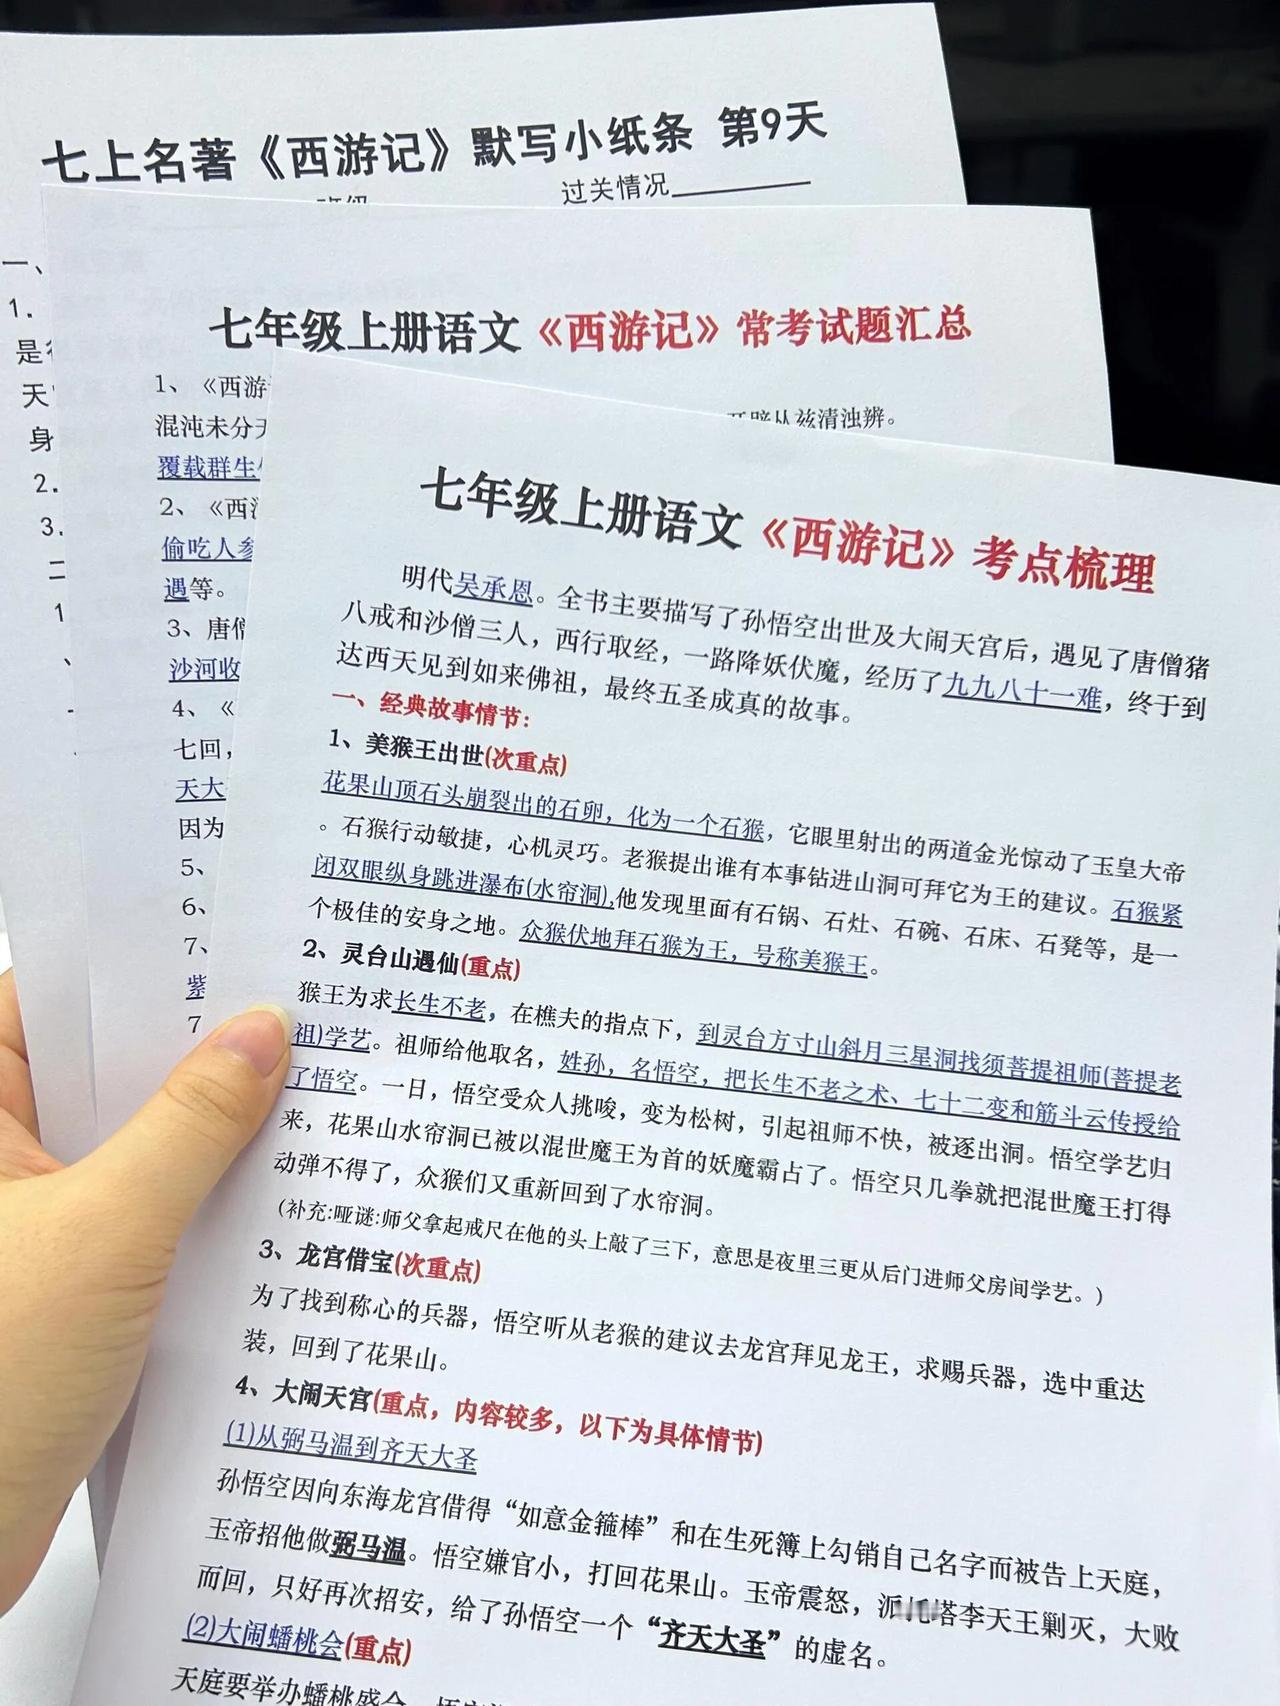 七上名著《西游记》默写小纸条 第9天
班级
过关情况
一、
1.
是
天
身
2.
3.
二
1
、
七年级上册语文《西游记》常考试题汇总
1、《西游
开辟从兹清浊辨。
混沌未分天
覆载群生
2、《西游
偷吃人参
遇等。
3、唐僧
沙河收
4、《
七回，
天大
因为
5、
6、
7、
紫
7
七年级上册语文《西游记》考点梳理
明代吴承恩。全书主要描写了孙悟空出世及大闹天宫后，遇见了唐僧猪
八戒和沙僧三人，西行取经，一路降妖伏魔，经历了九九八十一难，终于到
达西天见到如来佛祖，最终五圣成真的故事。
一、经典故事情节：
1、美猴王出世(次重点)
花果山顶石头崩裂出的石卵，化为一个石猴，它眼里射出的两道金光惊动了玉皇大帝
。石猴行动敏捷，心机灵巧。老猴提出谁有本事钻进山洞可拜它为王的建议。石猴紧
闭双眼纵身跳进瀑布(水帘洞),他发现里面有石锅、石灶、石碗、石床、石凳等，是一
个极佳的安身之地。众猴伏地拜石猴为王，号称美猴王。
2、灵台山遇仙(重点)
猴王为求长生不老，在樵夫的指点下，到灵台方寸山斜月三星洞找须菩提祖师(菩提老
祖)学艺。祖师给他取名，姓孙，名悟空，把长生不老之术、七十二变和筋斗云传授给
了悟空。一日，悟空受众人挑唆，变为松树，引起祖师不快，被逐出洞。悟空学艺归
来，花果山水帘洞已被以混世魔王为首的妖魔霸占了。悟空只几拳就把混世魔王打得
动弹不得了，众猴们又重新回到了水帘洞。
(补充:哑谜:师父拿起戒尺在他的头上敲了三下，意思是夜里三更从后门进师父房间学艺。)
3、龙宫借宝(次重点)
为了找到称心的兵器，悟空听从老猴的建议去龙宫拜见龙王，求赐兵器，选中重达
装，回到了花果山。
4、大闹天宫(重点，内容较多，以下为具体情节)
(1)从弼马温到齐天大圣
孙悟空因向东海龙宫借得“如意金箍棒”和在生死簿上勾销自己名字而被告上天庭，
玉帝招他做弼马温。悟空嫌官小，打回花果山。玉帝震怒，派托塔李天王剿灭，大败
而回，只好再次招安，给了孙悟空一个“齐天大圣”的虚名。
(2)大闹蟠桃会(重点)
天庭要举办蟠桃盛会，悟空